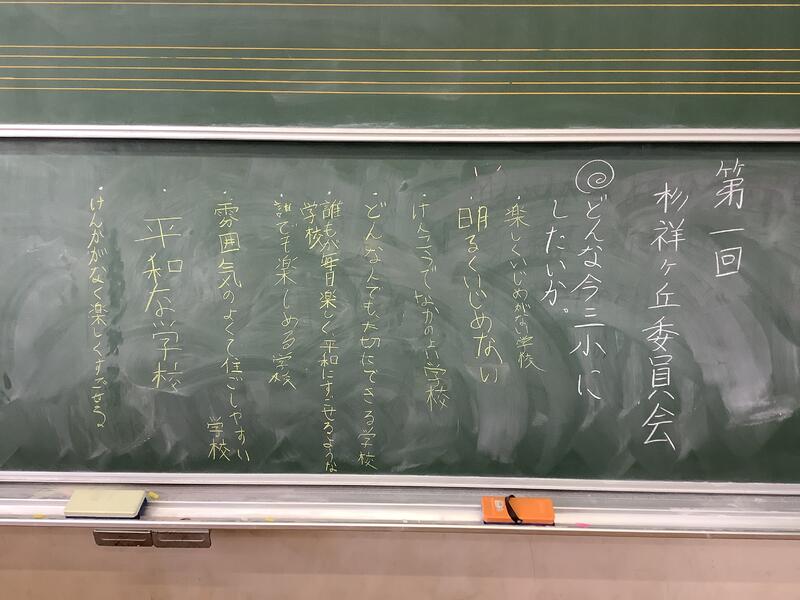 第一回
杉祥ヶ丘委員会
どんな今三小に
したいか。
・楽しくいじめがない学校
・明るくいじめない
・けんこうでなかのよい学校
・どんな人でも大切にできる学校
・誰もが毎日楽しく平和にすごせるような
学校
・誰でも楽しめる学校
・雰囲気のよくて住ごしやすい
学校
・平和な学校
・けんかがなく楽しくすごせる